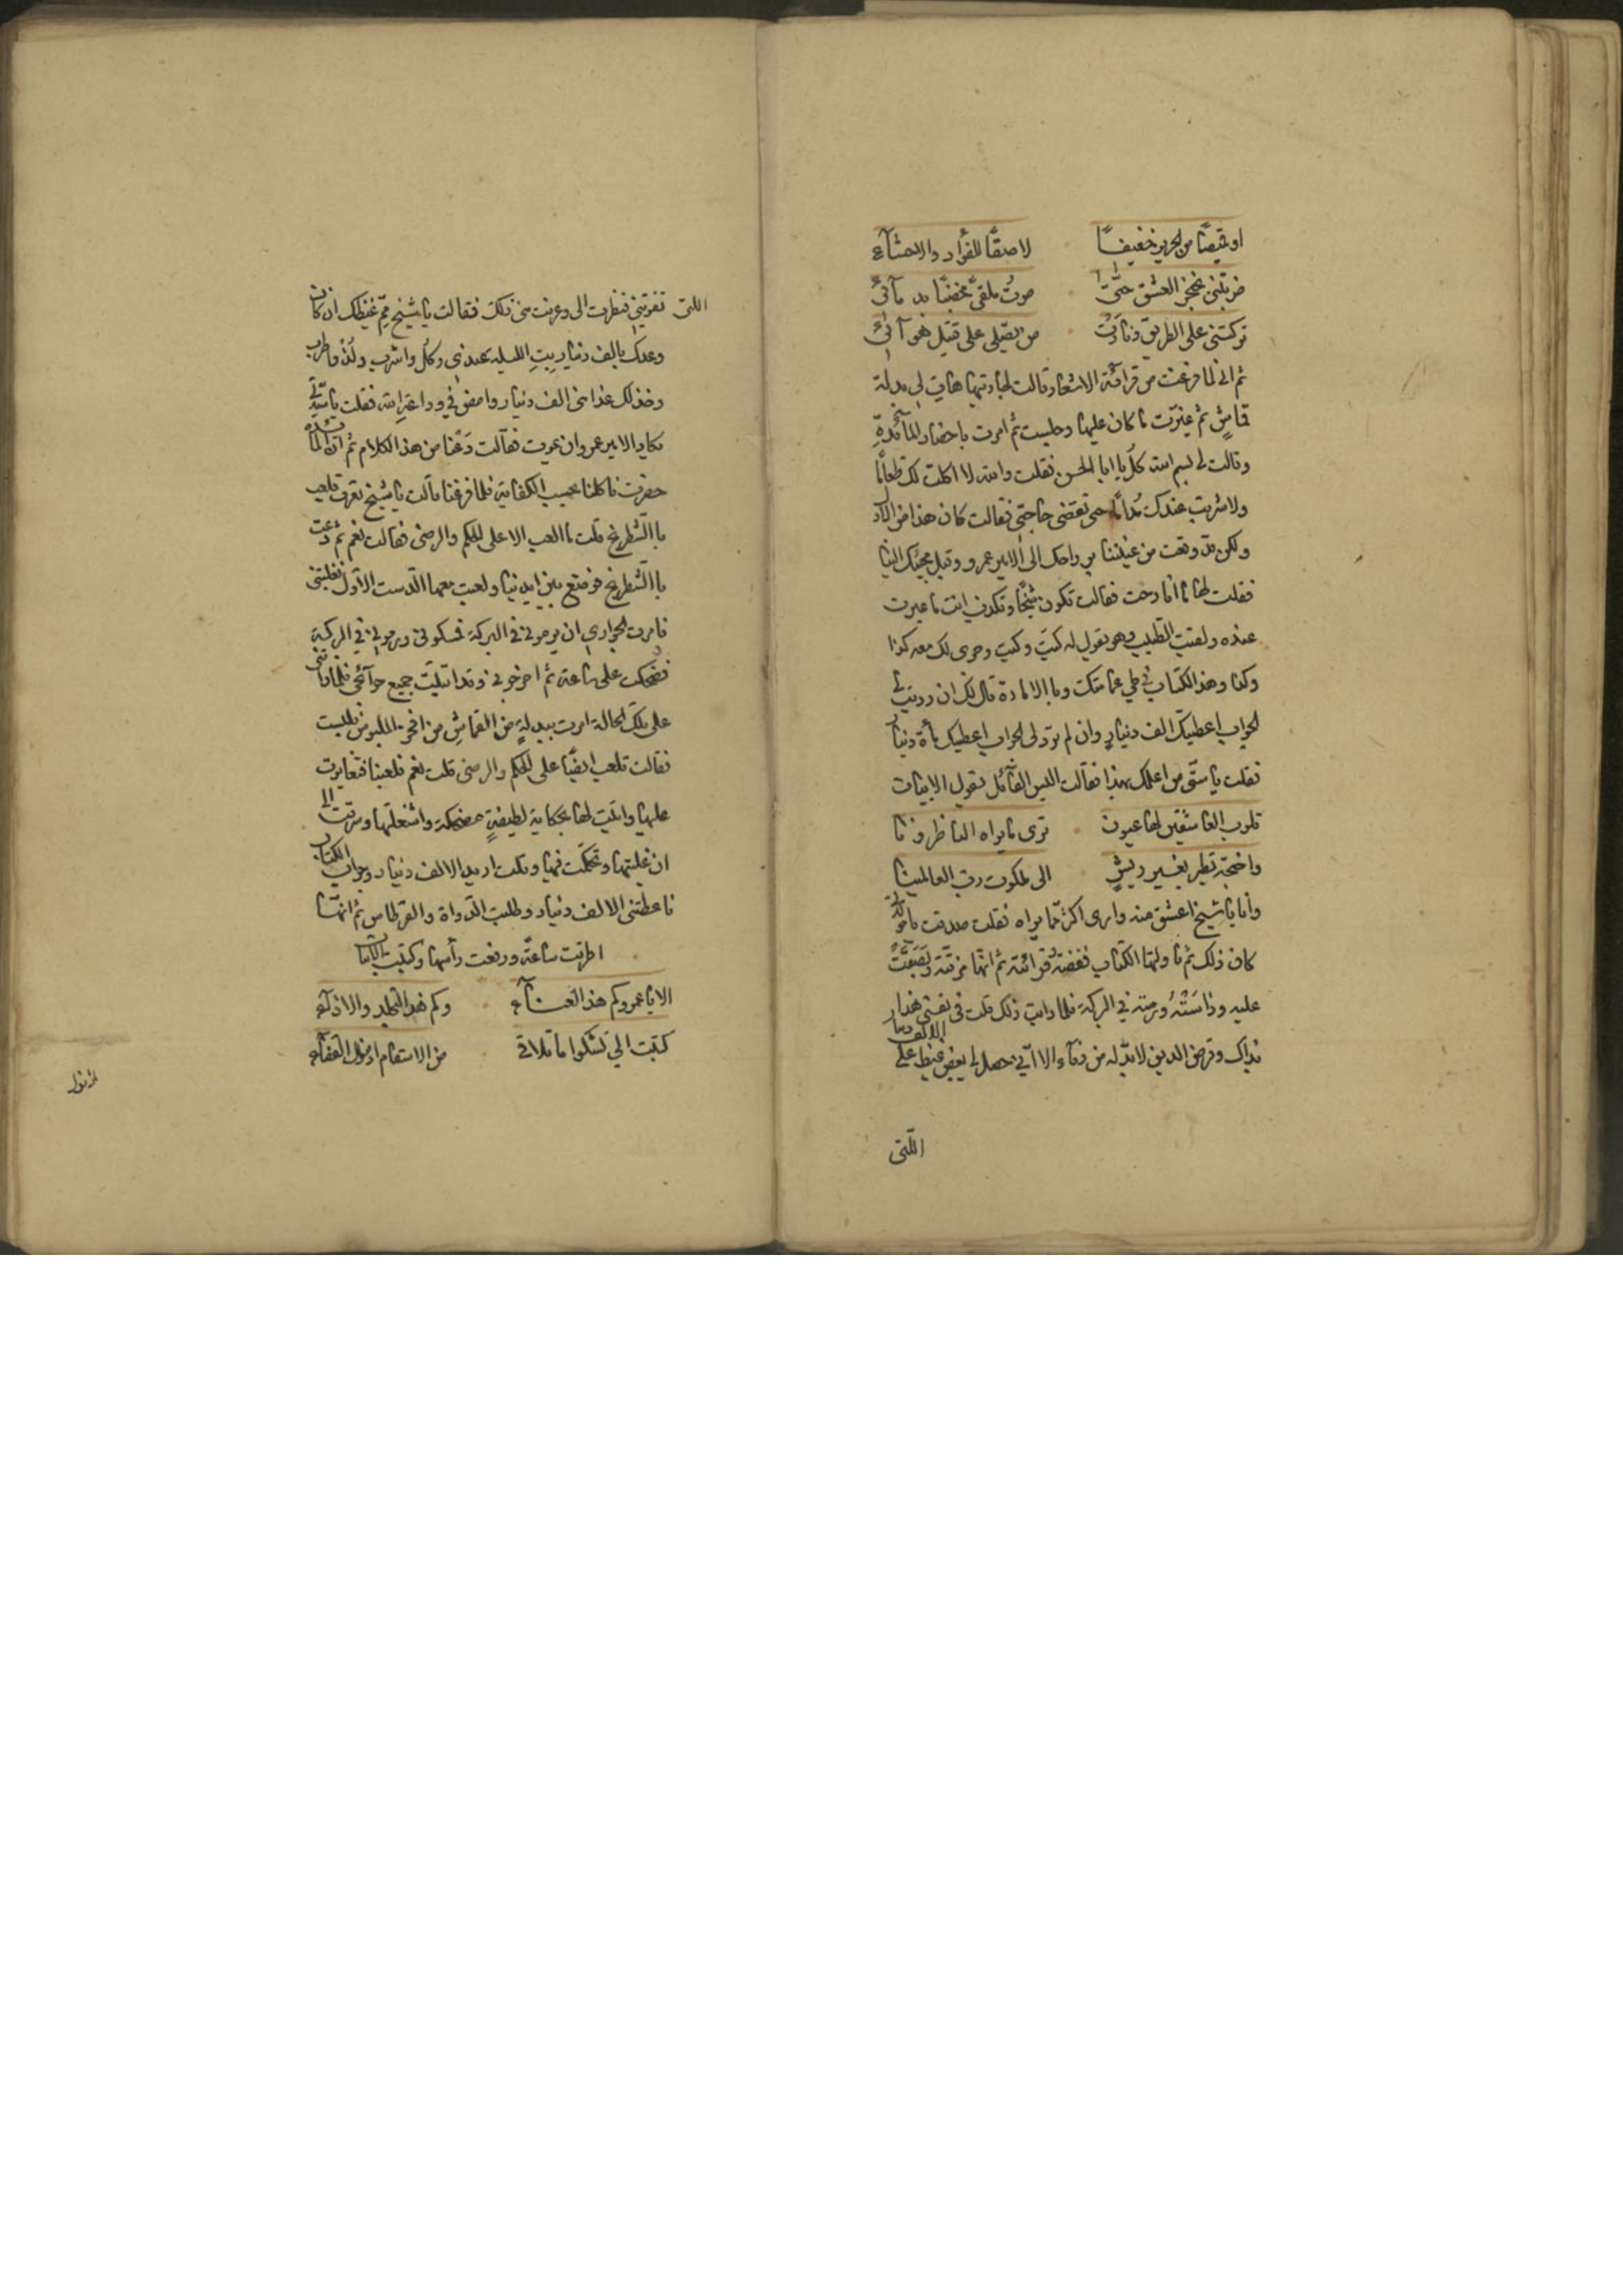 او قميصًا من الحرير خفيفًا لاصقًا للفؤاد والاحشآء
ضربتني بخنجر العشق حتّى صرتُ ملقىً مخضبًا بدمآئي
تركتني على الطريق ونادت من يصلي على قتيل هوآئي
ثم اني لما فرغت من قرآئة الاشعار قالت لجاريتها هاتي لي بدلة
قماشٍ ثم غيّرت ما كان عليها وجلست ثم امرت باحضار المآئدةِ
وقالت لي بسم الله كُل يا ابا الحسن فقلت والله لا اكلت لكِ طعامًا
ولا شربت عندك مُدامًا حتى تقضي حاجتي فقالت كان هذا من الاول
ولكن قد وقعت من عيننا من رواحك الى الامير عمرو وقبل مجيئك الينا
فقلت لها ما انا رحت فقالت تكون شيخًا وتكذب انت ما عبرت
عنده ولقيت الطبيب وهو يقول له كيت وكيت وجرى لك معه كذا
وكذا وهذا الكتاب في طي عمامتك وبالامارة قال لك ان رديت لي
الجواب اعطيك الف دينارٍ وان لم ترد لي الجواب اعطيك مأة دينار
فقلت يا ستي من اعلمك بهذا فقالت اليس القآئل يقول الابيات
قلوب العاشقين لها عيون ترى ما يراه الناظرونا
واجنحة تطير بغير ريشٍ الى ملكوت رب العالمينا
وانا يا شيخ اعشق منه وارى اكثر مما يراه فقلت صدقت يا مولاتي
كان ذلك ثم ناولتها الكتاب ففضته قرائته ثم انها مزقته وبصقت
عليه وداسته ورمته في البركة فلما رايت ذلك قلت في نفسي هذا
بذاك وقرض الدين لا بدّ له من وفآء الا انّي حصل لي بعض غيظ على الالف دينار
اللتي
اللتي تفوتني فنظرت الي وعرفت مني ذلك فقالت يا شيخ ممّ غيظك ان كان
وعدك بالف دينار بِتِ الليلة عندي وكُل واشرب ولُذ واطرب
وخذ لك غدا مني الف دينار وامض في وداعة الله فقلت يا سيدتي
مكايد الامير عمرو ان عوت فقالت دَعْنا من هذا الكلام ثم ان المآئدة
حضرت فاكلنا بحسب الكفاية فلما فرغنا قالت يا شيخ تعرف تلعب
بالشطرنج قلت ما العب الا على الحكم والرضى فقالت نعم ثم دعت
بالشطرنج فوضع بين ايدينا ولعبت معها الدست الاول فغلبتني
فامرت الجواري ان يرموني في البركة فمسكوني ورموني في البركة
فضحكت علي ساعة ثم اخرجوني وقد ابتليت جميع حوآئجي فلما راتني
على تلك الحالة امرت ببدلةٍ من القماشِ من افخر الملبوس فلبست
فقالت تلعب ايضًا على الحكم والرضى قلت نعم فلعبنا فتعايرت
عليها واتيت لها بحكاية لطيفةٍ مضحكة واشغلتها وسرقت الى
ان غلبتها وتحكمت فيها وقلت اريد الالف دينار وجواب الكتاب
فاعطتني الالف دينار وطلبت الدواة والقرطاس ثم انها
اطرقت ساعةً ورفعت رأسها وكتبت الابيات
الا يا عمرو كم هذا العنآء وكم هذا التجلد والاذآء
كتبت الي تشكوا ما تلاقي من الاسقام اذ نزل القضآء